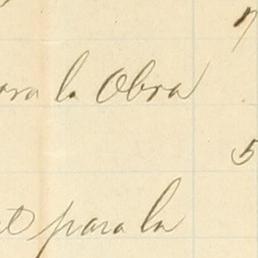 7
para la Obra
5
para la